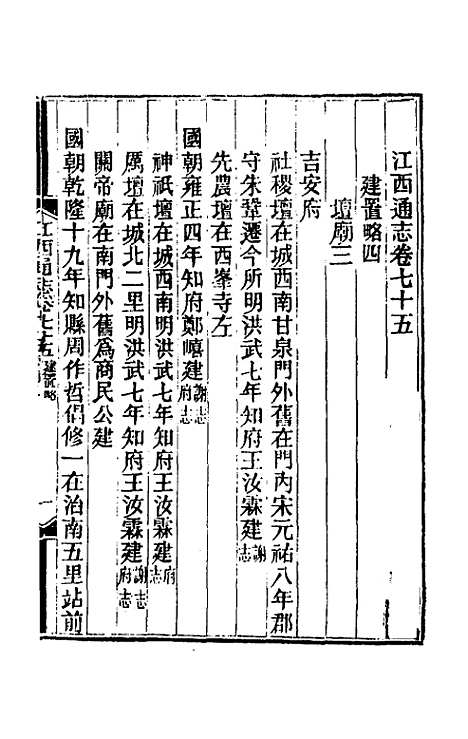 江西通志卷七十五
建置略四
壇廟三
吉安府
社稷壇在城西南甘泉門外舊在門內宋元祐八年郡
守朱鞏遷今所明洪武七年知府王汝霖建謝志
先農壇在西峯寺左
國朝雍正四年知府鄭嶹建謝志府志
神祇壇在城西南明洪武七年知府王汝霖建府志
厲壇在城北二里明洪武七年知府王汝霖建謝志府志
關帝廟在南門外舊爲商民公建
國朝乾隆十九年知縣周作哲倡修一在治南五里站前
江西通志卷七十五 建置略